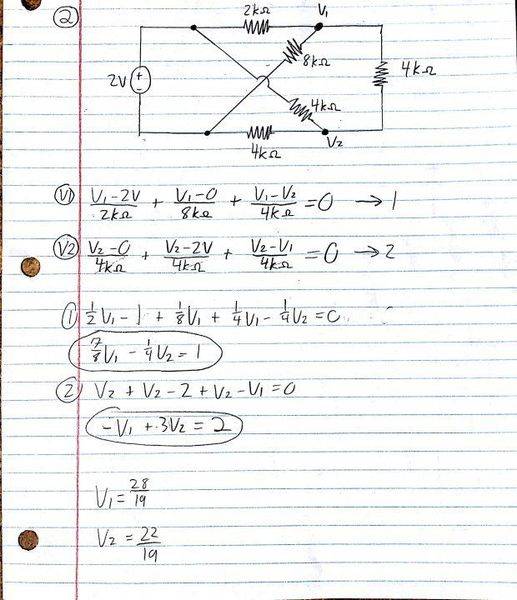 ②
2kΩ V₁
2V + - 8kΩ 4kΩ
4kΩ
4kΩ V₂
(V1) (V₁-2V)/2kΩ + (V₁-0)/8kΩ + (V₁-V₂)/4kΩ = 0 → 1
(V2) (V₂-0)/4kΩ + (V₂-2V)/4kΩ + (V₂-V₁)/4kΩ = 0 → 2
① ½V₁ - 1 + ⅛V₁ + ¼V₁ - ¼V₂ = 0
⅞V₁ - ¼V₂ = 1
② V₂ + V₂ - 2 + V₂ - V₁ = 0
-V₁ + 3V₂ = 2
V₁ = 28/19
V₂ = 22/19